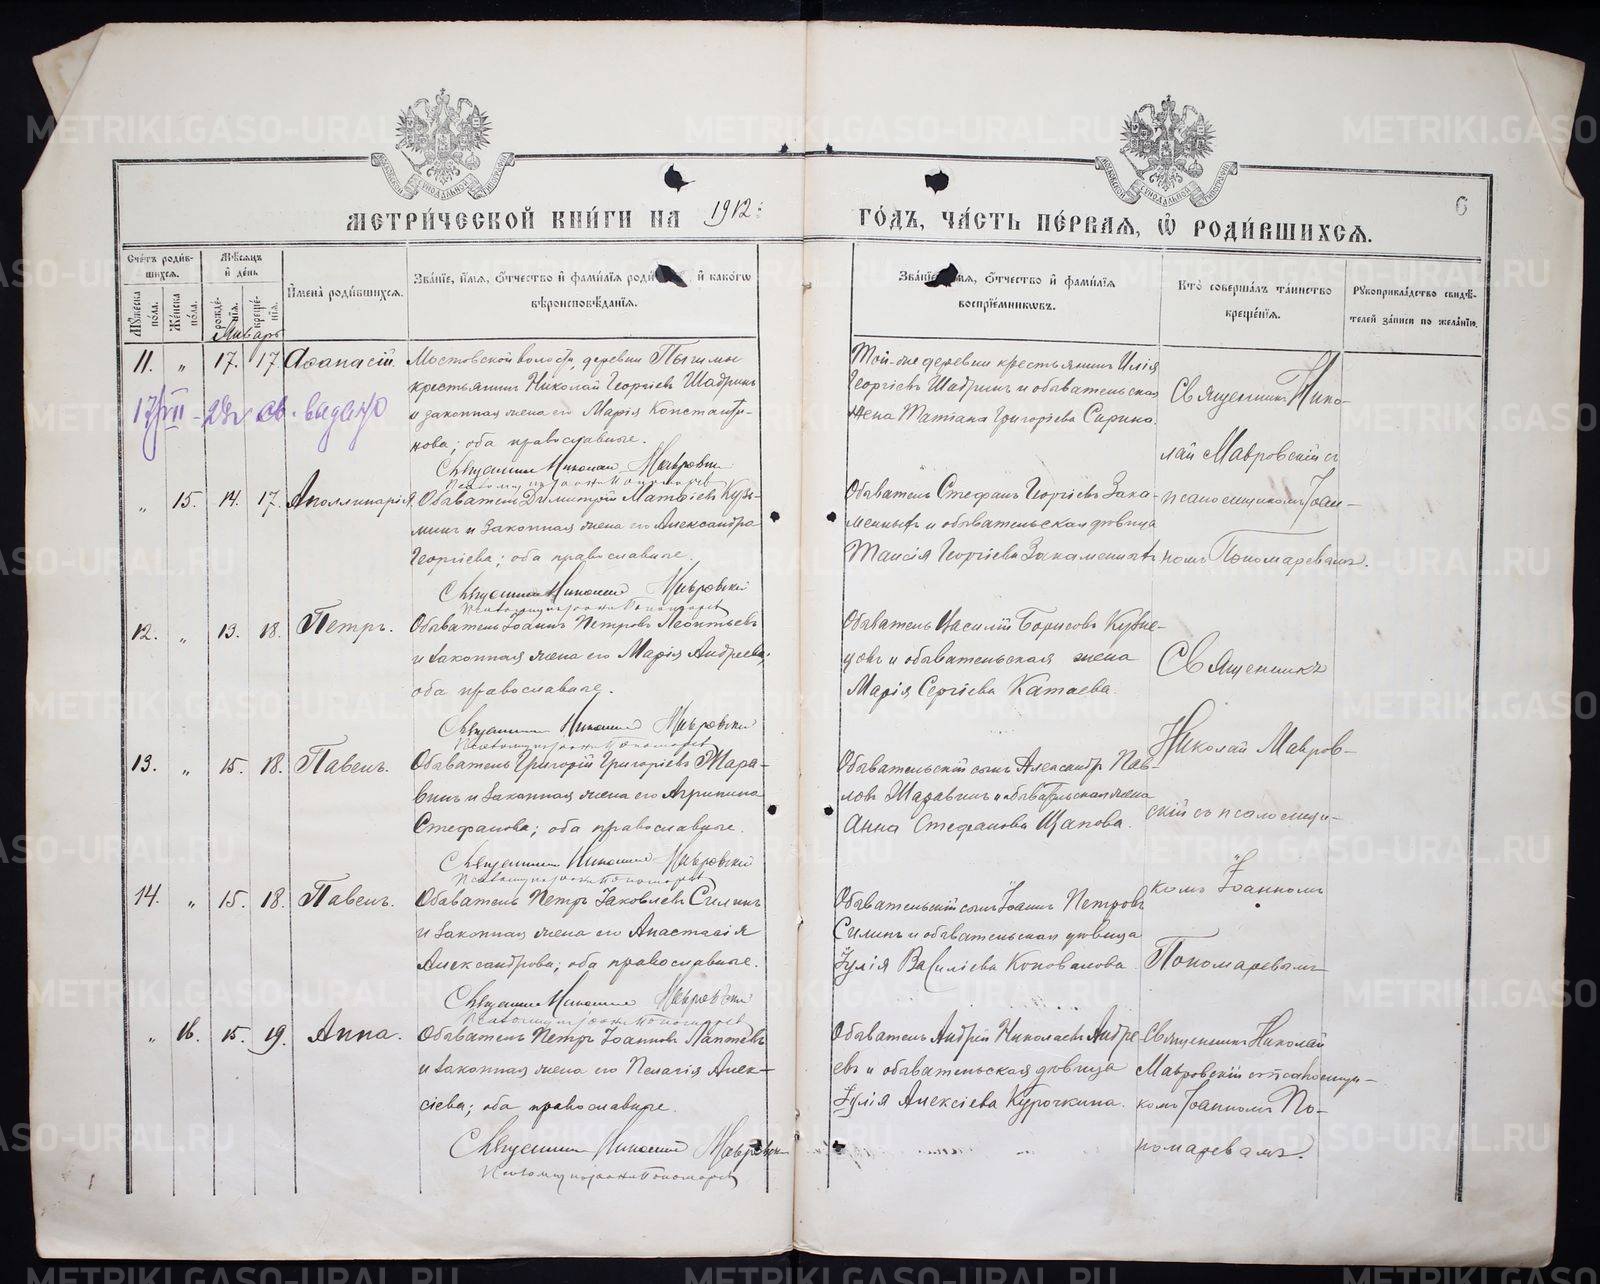 МЕТРИ́ЧЕСКОЙ КНИ́ГИ НА 1912
ГО́ДЪ, ЧА́СТЬ ПЕ́РВАЯ, Ѿ РОДИ́ВШИХСЯ.
6
Сче́тъ роди́в-
шихся.
Му́жеска по́ла.
Же́нска по́ла.
Мѣ́сяцъ
и де́нь
рожде́-нія.
креще́-нія.
Имена́ роди́вшихся.
Зва́ніе, и́мя, о́тчество и фами́лія роди и како́гѡ
вѣроисповѣ́данія.
Зва́ніе, и́мя, о́тчество и фами́лія
воспріе́мниковъ.
Кто̀ соверша́лъ та́инство
креще́нія.
Рукоприкла́дство свидѣ́-
телей за́писи по жела́нію.
Январь
11. " 17. 17. Аѳанасій.
Мостовской волости, деревни
крестьянинъ Николай Георгіевъ Шадринъ
и законная жена его Марія Константи-
нова; оба православные.
Священникъ Николай Мавровскій
Той-же деревни крестьянинъ Илія
Георгіевъ Шадринъ и обывательская
жена Татіана Григоріева Сарина.
Священникъ Нико-
лай Мавровскій съ
" 15. 14. 17. Аполлинарія.
Обыватель Димитрій Матѳіевъ Кузь-
минъ и законная жена его Александра
Георгіева; оба православные.
Священникъ Николай Мавровскій
Обыватель Стефанъ Георгіевъ Зака-
менныхъ и обывательская дѣвица
Таисія Георгіева Закаменныхъ
псаломщикомъ Іоан-
номъ Пономаревымъ.
12. " 13. 18. Петръ.
Обыватель Іоаннъ Петровъ Леонтьевъ
и законная жена его Марія Андреева;
оба православные.
Священникъ Николай Мавровскій
Обыватель Василій Борисовъ Кузне-
цовъ и обывательская жена
Марія Сергіева Катаева.
Священникъ
Николай Мавров-
13. " 15. 18. Павелъ.
Обыватель Григорій Григоріевъ Жара-
винъ и законная жена его Агрипина
Стефанова; оба православные.
Священникъ Николай Мавровскій
Обывательскій сынъ Александръ Пав-
ловъ Жаравинъ и обывательская жена
Анна Стефанова Щапова.
скій съ псаломщи-
комъ Іоанномъ
14. " 15. 18. Павелъ.
Обыватель Петръ Іаковлевъ Силинъ
и законная жена его Анастасія
Александрова; оба православные.
Священникъ Николай Мавровскій
Обывательскій сынъ Іоаннъ Петровъ
Силинъ и обывательская дѣвица
Іулія Василіева Коновалова.
Пономаревымъ
" 16. 15. 19. Анна.
Обыватель Петръ Іоанновъ Лаптевъ
и законная жена его Пелагія Алек-
сіева; оба православные.
Священникъ Николай Мавровскій
Обыватель Андрей Николаевъ Андре-
евъ и обывательская дѣвица
Іулія Алексіева Курочкина.
Священникъ Николай
Мавровскій съ псаломщи-
комъ Іоанномъ По-
номаревымъ.
METRIKI.GASO-URAL.RU